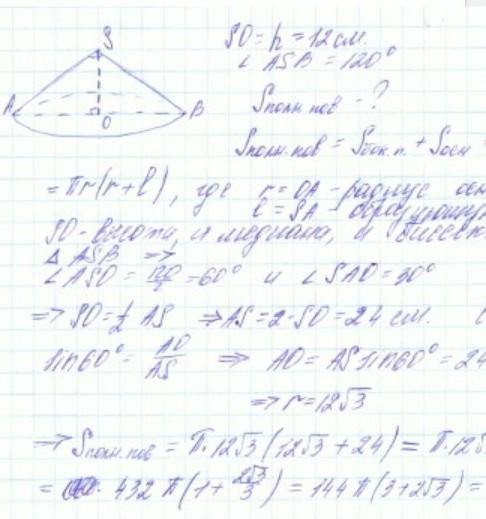 S
A
O
B
SO = h = 12 см.
∠ ASB = 120°
Sполн.пов - ?
Sполн.пов = Sбок.п. + Sосн
= πr(r+l), где r = OA - радиус осн
l = SA - образующая
SO - высота, и медиана, и биссект
△ ASB ⇒
∠ASO = 120/2 = 60° и ∠SAO = 30°
⇒ SO = 1/2 AS ⇒ AS = 2·SO = 24 см.
sin60° = AO/AS ⇒ AO = AS sin60° = 24
⇒ r = 12√3
⇒ Sполн.пов = π·12√3(12√3 + 24) = π·12√
= 432 π(1 + 2√3/3) = 144π(3+2√3) =